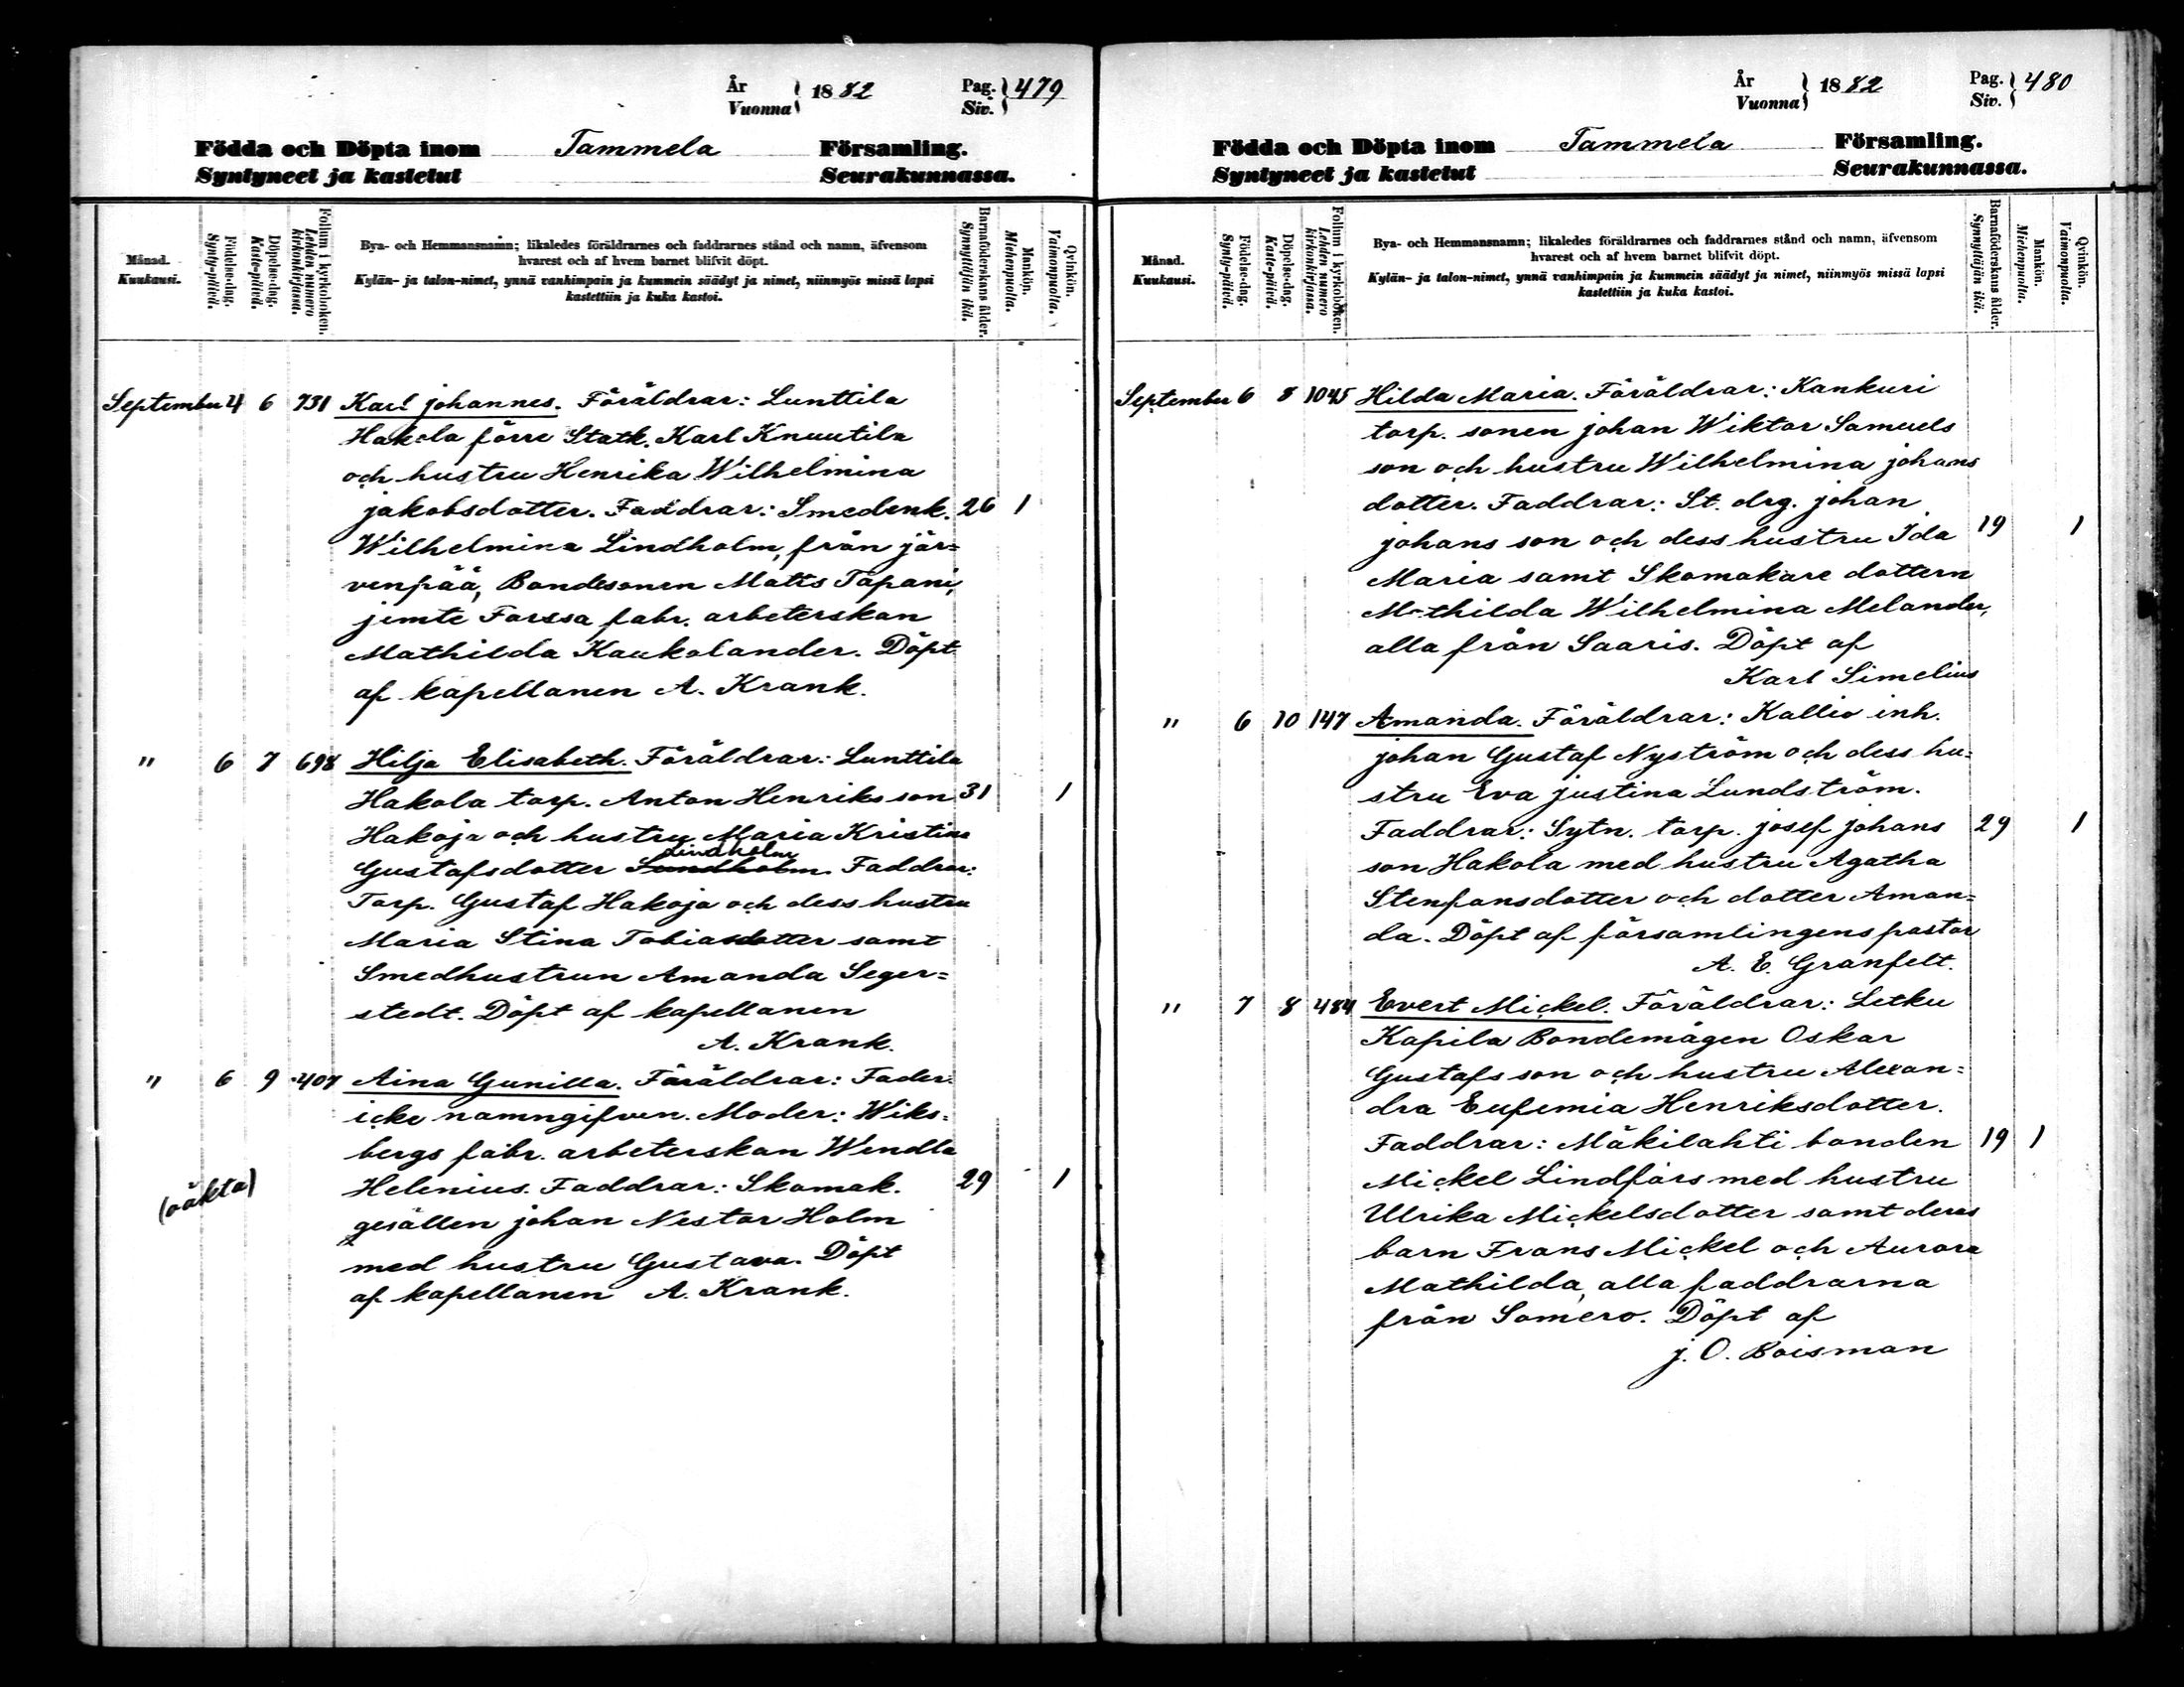 År
Vuonna } 1882 Pag. Siv. } 479
Födda och Döpta inom Tammela Församling.
Syntyneet ja kastetut Seurakunnassa.
Månad. Kuukausi.
Födelse-dag. Synty-päivä.
Döpelse-dag. Kaste-päivä.
Folium i kyrkoboken. Lehden numero kirkonkirjassa.
Bya- och Hemmansnamn; likaledes föräldrarnes och faddrarnes stånd och namn, äfvensom
hvarest och af hvem barnet blifvit döpt.
Kylän- ja talon-nimet, ynnä vanhimpain ja kummein säädyt ja nimet, niinmyös missä lapsi
kastettiin ja kuka kastoi.
Barnaföderskans ålder. Synnyttäjän ikä.
Mankön. Miehenpuolta.
Qvinkön. Vaimonpuolta.
September 4 6 731 Karl johannes. Föräldrar: Lunttila
Hakola förre Statk. Karl Knuutila
och hustru Henrika Wilhelmina
jakobsdotter. Faddrar: Smedenk. 26 1
Wilhelmina Lindholm, från jär=
venpää, Bondesonen Matts Tapani,
jemte Forssa fabr. arbeterskan
Mathilda Kaukolander. Döpt
af kapellanen A. Krank.
" 6 7 698 Hilja Elisabeth. Föräldrar: Lunttila
Hakola torp. Anton Henriksson 31 1
Hakoja och hustru Maria Kristina
Lindholm
Gustafsdotter Lundholm. Faddrar:
Torp. Gustaf Hakoja och dess hustru
Maria Stina Tobiasdotter samt
Smedhustrun Amanda Seger=
stedt. Döpt af kapellanen
A. Krank.
" 6 9 407 Aina Gunilla. Föräldrar: Fader:
icke namngifven. Moder: Wiks=
bergs fabr. arbeterskan Wendla
(oäkta) Helenius. Faddrar: Skomak. 29 1
gesällen johan Nestor Holm
med hustru Gustava. Döpt
af kapellanen A. Krank.
År
Vuonna } 1882 Pag. Siv. } 480
Födda och Döpta inom Tammela Församling.
Syntyneet ja kastetut Seurakunnassa.
Månad. Kuukausi.
Födelse-dag. Synty-päivä.
Döpelse-dag. Kaste-päivä.
Folium i kyrkoboken. Lehden numero kirkonkirjassa.
Bya- och Hemmansnamn; likaledes föräldrarnes och faddrarnes stånd och namn, äfvensom
hvarest och af hvem barnet blifvit döpt.
Kylän- ja talon-nimet, ynnä vanhimpain ja kummein säädyt ja nimet, niinmyös missä lapsi
kastettiin ja kuka kastoi.
Barnaföderskans ålder. Synnyttäjän ikä.
Mankön. Miehenpuolta.
Qvinkön. Vaimonpuolta.
September 6 8 1045 Hilda Maria. Föräldrar: Kankuri
torp. sonen johan Wiktor Samuels
son och hustru Wilhelmina johans
dotter. Faddrar: St. drg. johan
johans son och dess hustru Ida 19 1
Maria samt Skomakare dottern
Mathilda Wilhelmina Melander,
alla från Saaris. Döpt af
Karl Simelius
" 6 10 147 Amanda. Föräldrar: Kallio inh.
johan Gustaf Nyström och dess hu=
stru Eva justina Lundström.
Faddrar: Sytn. torp. josef johans 29 1
son Hakola med hustru Agatha
Stenfansdotter och dotter Aman=
da. Döpt af församlingens pastor
A. E. Granfelt.
" 7 8 484 Evert Mickel. Föräldrar: Letku
Kapila Bondemågen Oskar
Gustafs son och hustru Alexan=
dra Eufemia Henriksdotter.
Faddrar: Mäkilahti bonden 19 1
Mickel Lindfors med hustru
Ulrika Mickelsdotter samt deras
barn Frans Mickel och Aurora
Mathilda, alla faddrarna
från Somero. Döpt af
j. O. Boisman